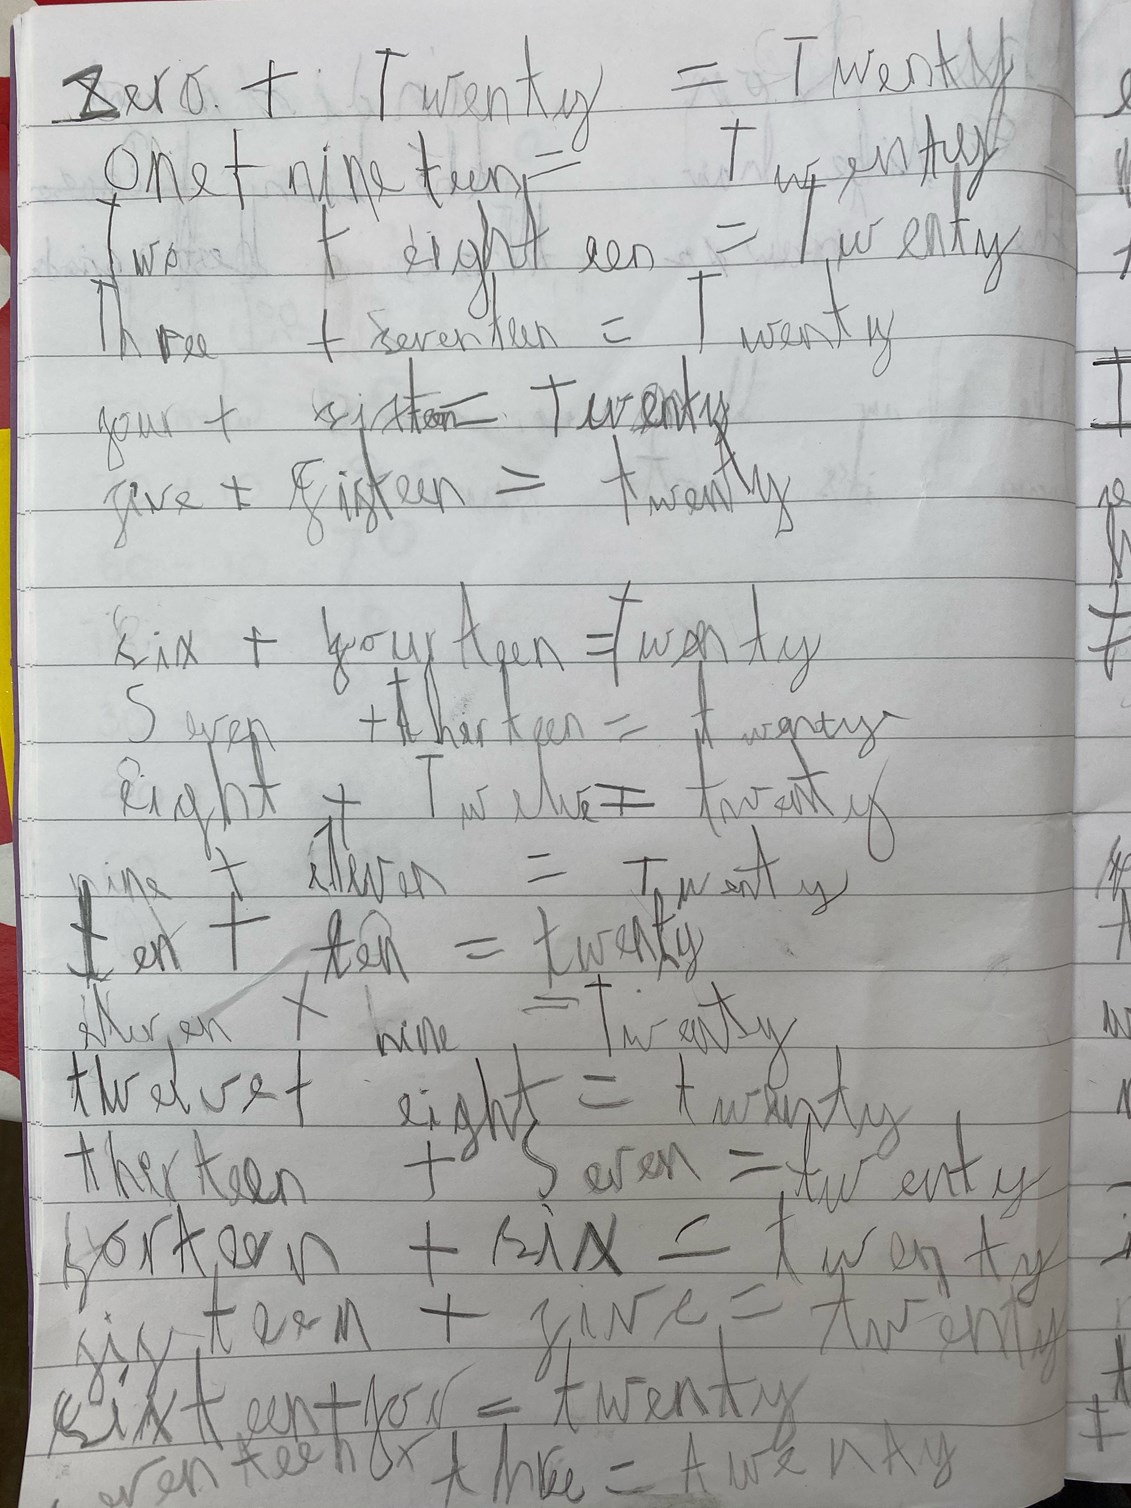 Zero. + Twenty = Twenty
One + nineteen = Twenty
Two + eighteen = Twenty
Three + seventeen = Twenty
four + sixteen = Twenty
five + fifteen = twenty
six + fourteen = Twenty
Seven + therteen = twenty
Eight + Twelve = twenty
nine + eleven = Twenty
ten + ten = twenty
eleven + nine = Twenty
twelve + eight = twenty
therteen + Seven = twenty
forteen + six = twenty
fifteen + five = twenty
sixteen + for = twenty
three = twenty